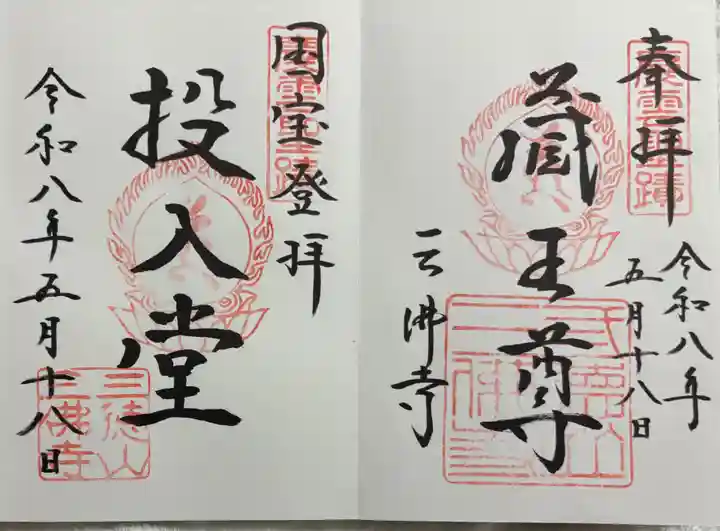 奉拝
令和八年
五月十八日
蔵王尊
三佛寺
国宝登拝
投入堂
令和八年五月十八日
三徳山
三佛寺